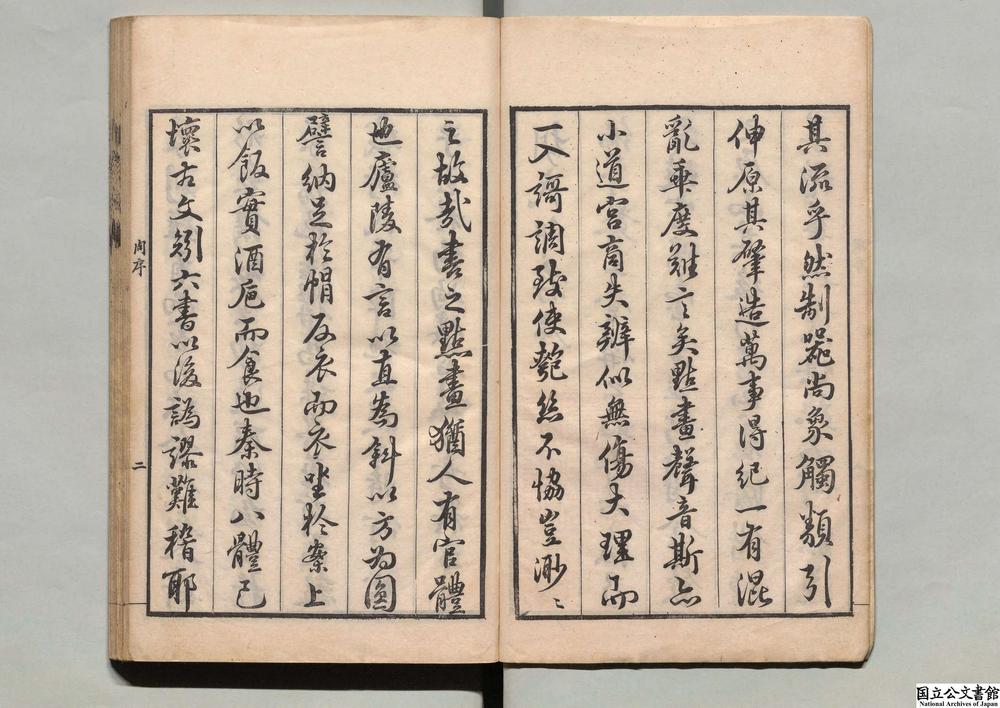 其流乎然制器尚象觸類引
伸原其肇造萬事得紀一有混
亂乖度難言矣點畫聲音斯亦
小道宮商失辨似無傷大理而
一入謌調致使匏絲不恊豈渺〻
之故哉書之點畫猶人有官體
也廬陵有言以直爲斜以方为圓
譬納足於帽反衣而衣坐於案上
以飯實酒巵而食也秦時八體已
壞古文矧六書以後譌謬難稽耶
周序
二
国立公文書館
National Archives of Japan